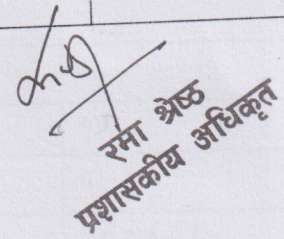 रमा श्रेष्ठ
प्रशासकीय अधिकृत